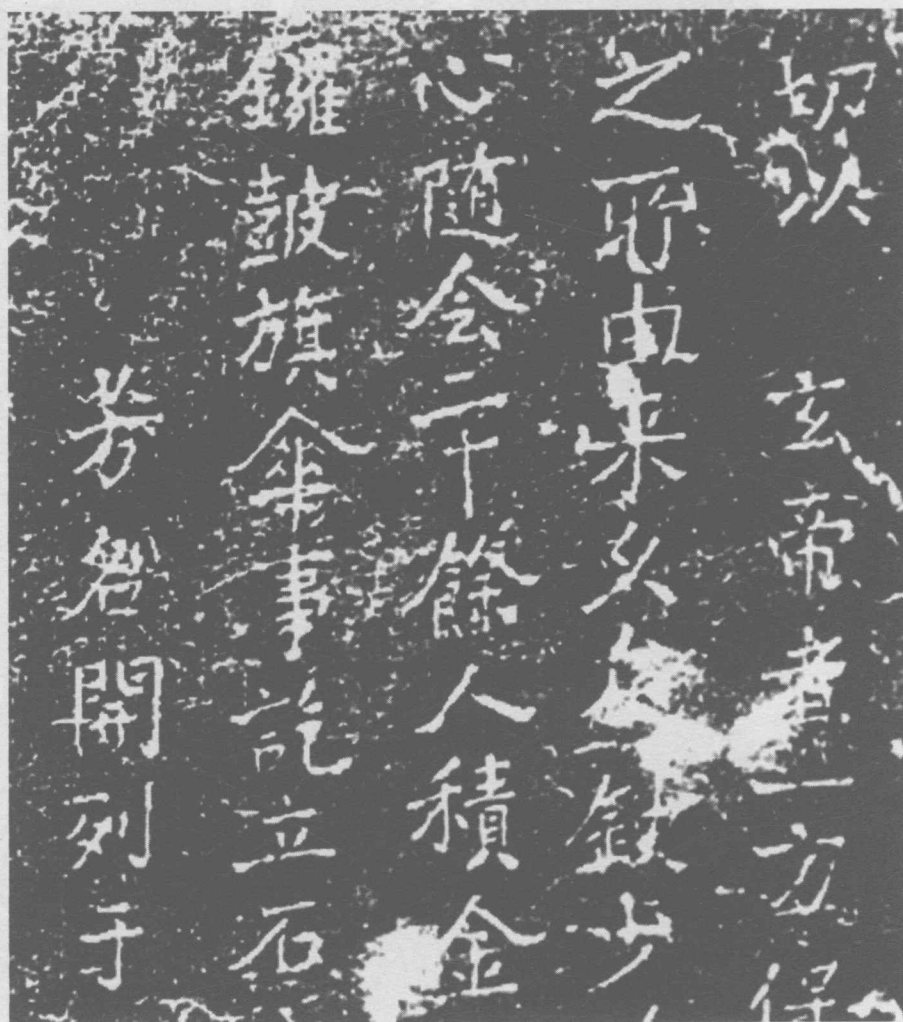 切以玄帝者一方得
之所由来久矣歛少
心随会二千餘人積金
鑼鼓旗傘事訖立石
芳名開列于